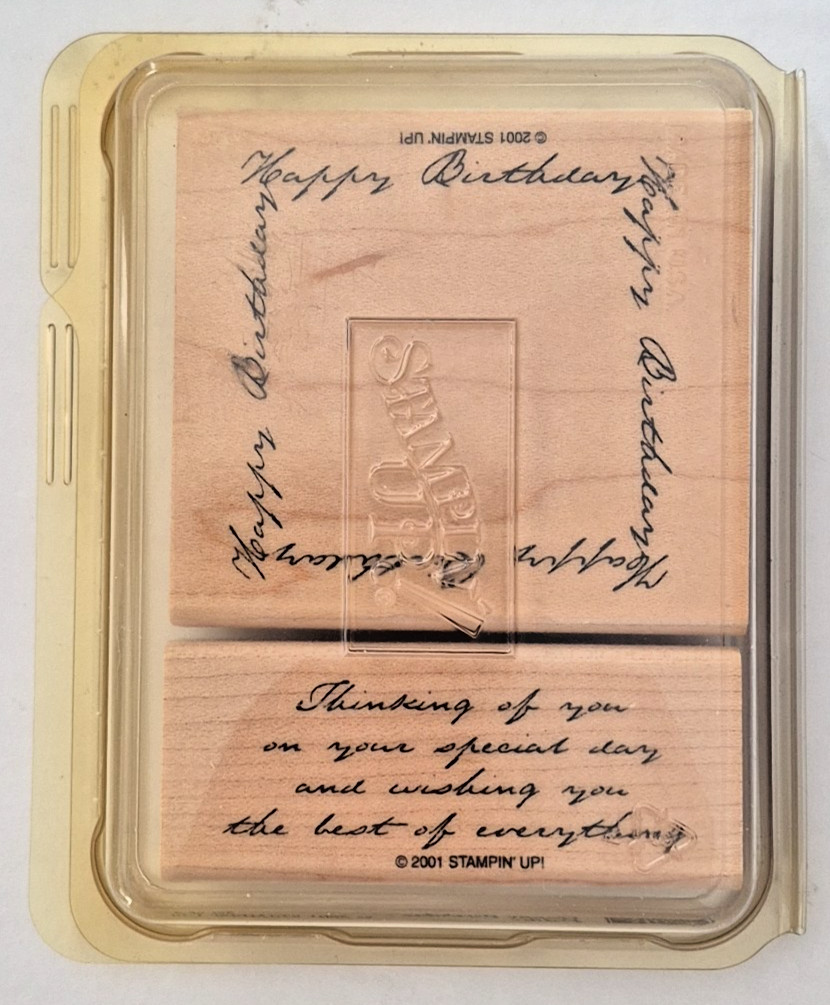 © 2001 STAMPIN' UP!
Happy Birthday
Happy Birthday
Happy Birthday
Happy Birthday
STAMPIN' UP!
Thinking of you
on your special day
and wishing you
the best of everything
© 2001 STAMPIN' UP!